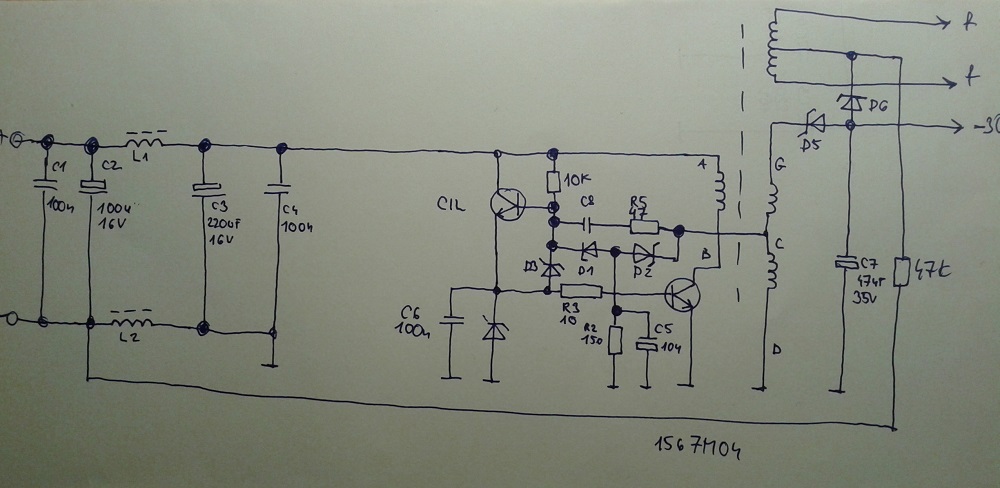 f
f
-30
+
L1
C1
100n
C2
100u
16V
C3
220uF
16V
C4
100n
L2
C1L
10K
C8
R5
47
D3
D1
D2
R3
10
C6
100n
R2
150
C5
10u
A
B
G
C
D
D5
D6
C7
47uF
35V
47K
1567M04